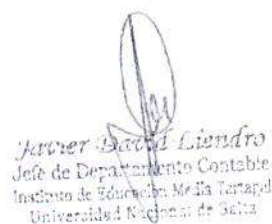 Javier David Liendro
Jefe de Departamento Contable
Instituto de Educación Media Tartagal
Universidad Nacional de Salta